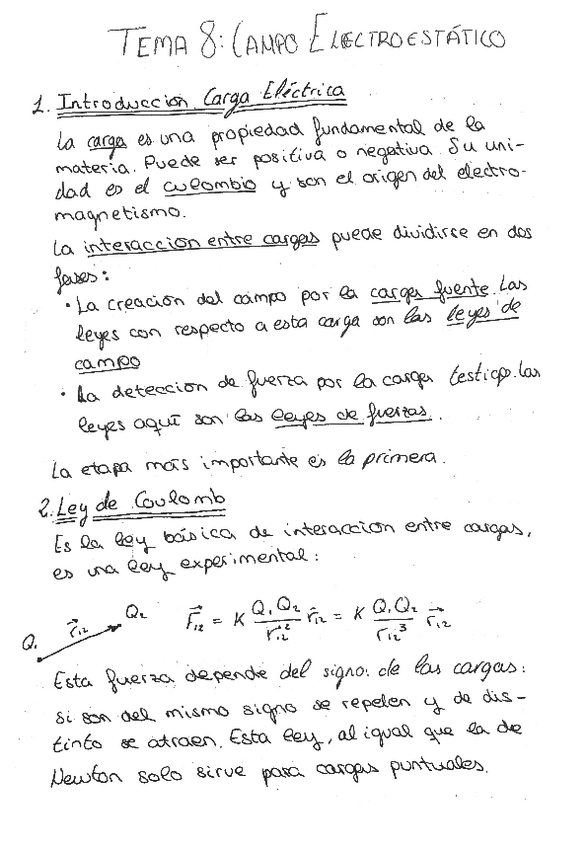 TEMA 8: CAMPO ELECTROESTÁTICO
1. Introduccion Carga Eléctrica
La carga es una propiedad fundamental de la
materia. Puede ser positiva o negativa. Su uni-
dad es el culombio y son el origen del electro-
magnetismo.
La interaccion entre cargas puede dividirse en dos
fases:
· La creación del campo por la carga fuente. Las
leyes con respecto a esta carga son las leyes de
campo
· La deteccion de fuerza por la carga testigo. Las
leyes aquí son las leyes de fuerzas.
La etapa más importante es la primera.
2. Ley de Coulomb
Es la ley básica de interaccion entre cargas,
es una ley experimental:
Q₁ r⃗₁₂ Q₂ F⃗₁₂ = K Q₁Q₂/r₁₂² r̂₁₂ = K Q₁Q₂/r₁₂³ r⃗₁₂
Esta fuerza depende del signo de las cargas:
si son del mismo signo se repelen y de dis-
tinto se atraen. Esta ley, al igual que la de
Newton solo sirve para cargas puntuales.